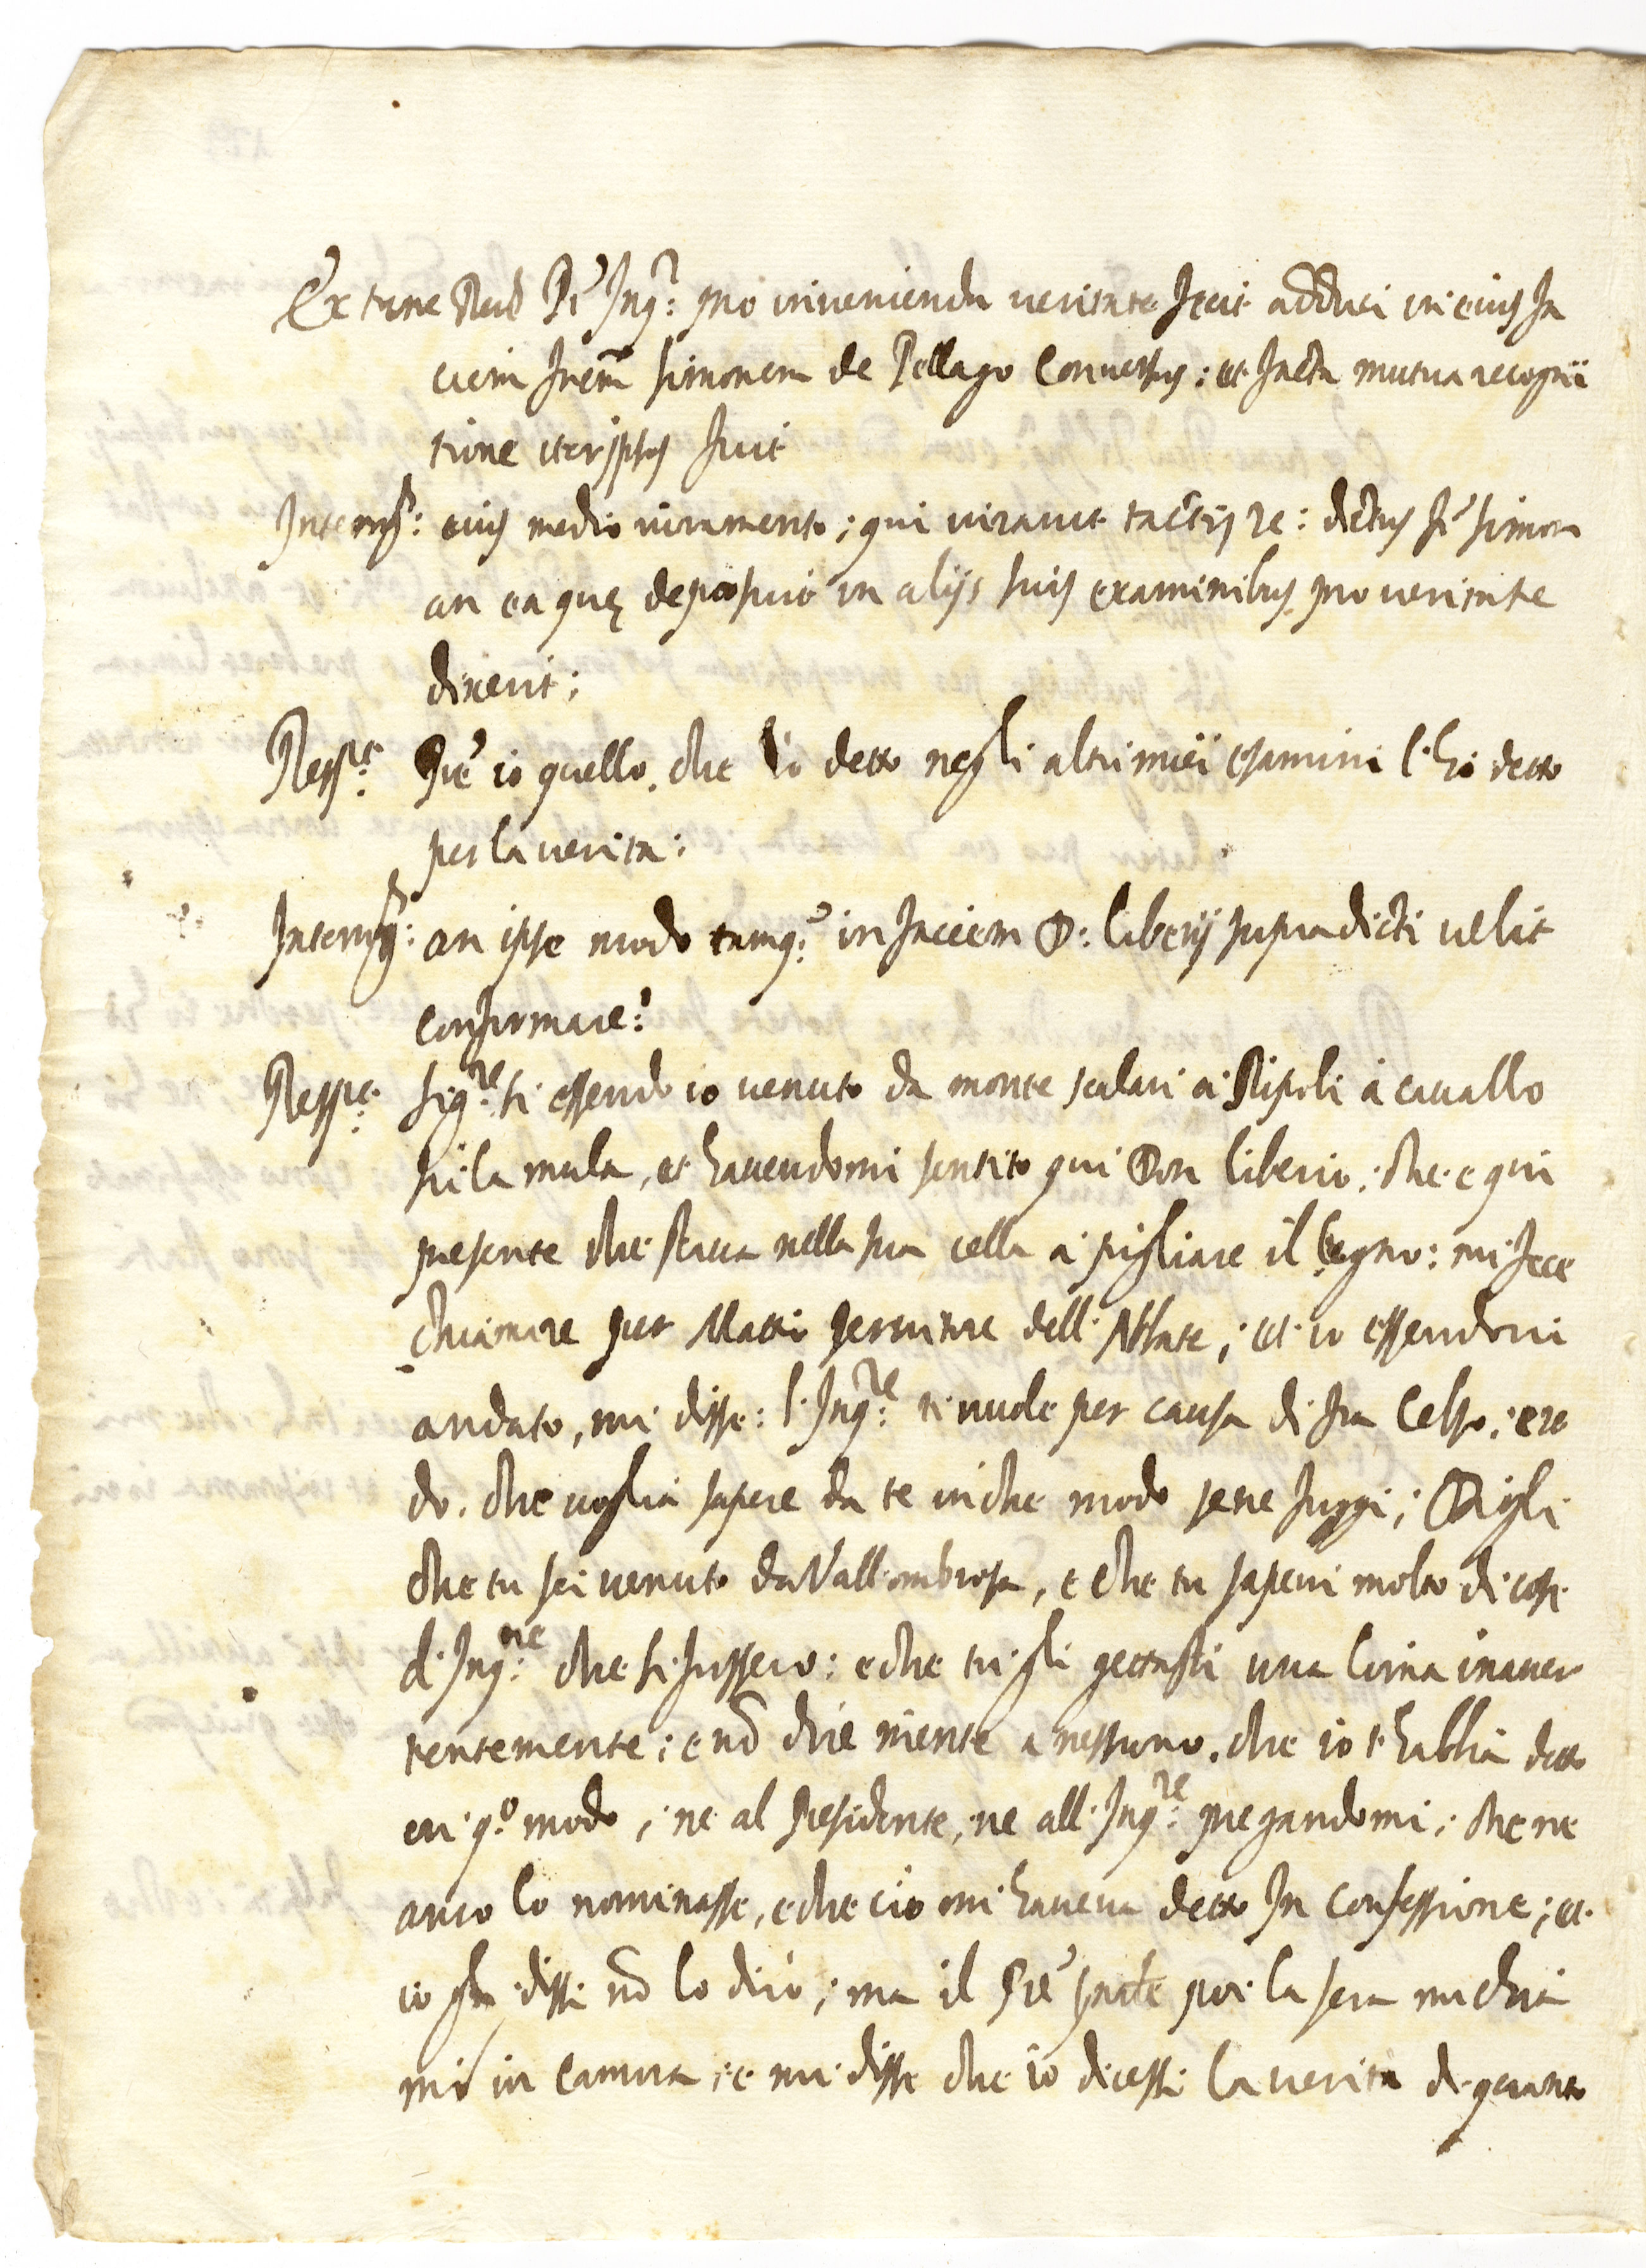 Ex tunc Reud P. Inq.r pro invenienda veritate fecit adduci in eius fa
ciem frem simonem de Pellago Conversus: et facta mutua recogni
tione iter ipsos fuit
Interrog: eius medio iuramento; qui iuravit tactis re: dictus fr simon
an ea quę deposuit in alijs suis examinibus pro veritate
dixerit;
Resp.te Pre io quello, che ho detto negli altri miei esamini l'ho detto
per la verita:
Interrog: an ipse modo tamq. in faciem D: liberij supradicti velit
confirmare:
Resp.te Sig.re si essendo io venuto da monte scalari a Ripoli à cavallo
su la mula, et havendomi sentito qui Don liberio, che e qui
presente che stava nella sua cella a pigliare il legno: mi fece
chiamare per Matti servitore dell'Abbate; et io essendovi
andato, mi disse: l'Inq.re ti vuole per causa di fra Celso; cre
do, che voglia sapere da te in che modo se ne fuggi; Digli
che tu sei venuto da Vallombrosa, e che tu sapevi molto di cose
d'Inq.ne che si fussero: e che tu gli gettasti una lima inaver
tentemente; e nō dire niente a nessuno, che io t'habbia detto
in q.o modo, ne al Presidente, ne all'Inq.re pregandomi, che ne
anco lo nominasse, e che cio mi haveva detto In confessione; et
io gli dissi nō lo dirò; ma il Pre pnte poi la sera mi chia
mò in camera; e mi disse che io dicessi la verita di quanto